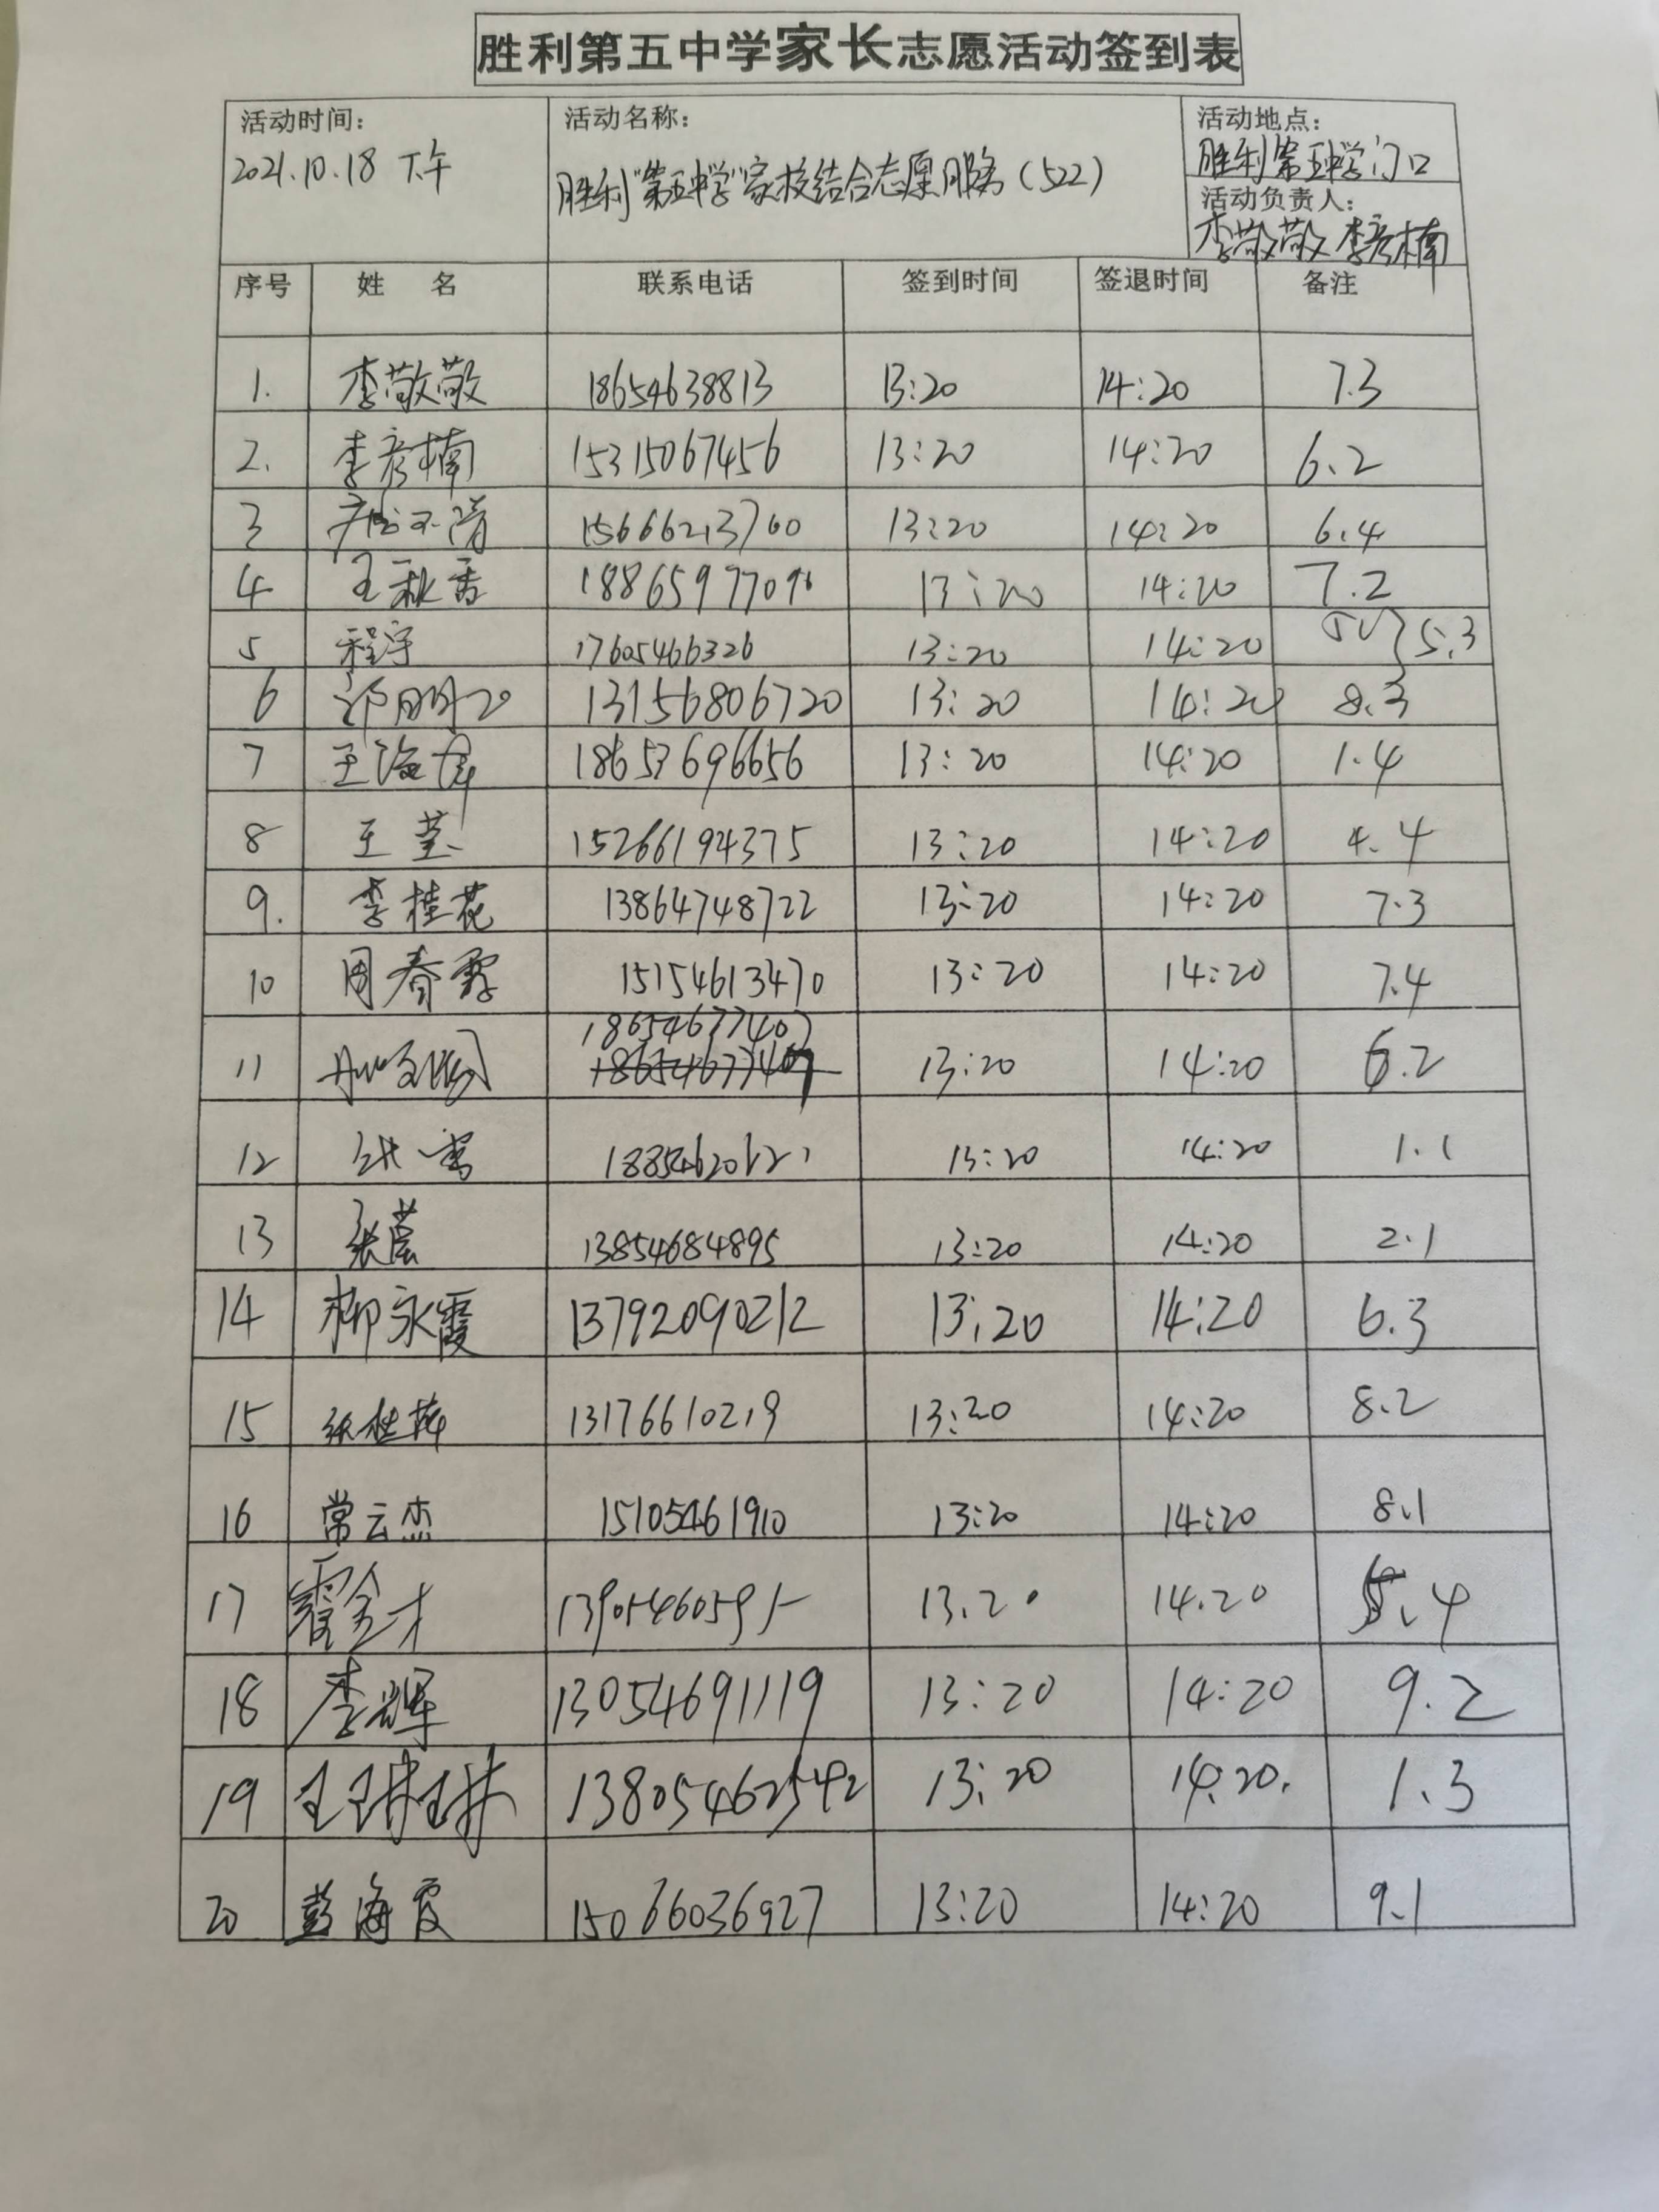 胜利第五中学家长志愿活动签到表
活动时间：
2021.10.18 下午
活动名称：
胜利“第五中学”家校结合志愿服务（522）
活动地点：
胜利第五中学门口
活动负责人：
李敬敬 李彦楠
序号 姓 名 联系电话 签到时间 签退时间 备注
1. 李敬敬 18654638813 13:20 14:20 7.3
2. 李彦楠 15315067456 13:20 14:20 6.2
3 15666213700 13:20 14:20 6.4
4 王秋香 13:20 14:20 7.2
5 程宇 17605466326 13:20 14:20 5.3
6 13156806720 13:20 14:20 8.3
7 王海 18653696656 13:20 14:20 1.4
8 王莹 15266194375 13:20 14:20 4.4
9. 李桂花 13864748722 13:20 14:20 7.3
10 周春霞 15154613470 13:20 14:20 7.4
11 18654677407 13:20 14:20 6.2
12 13:20 14:20 1.1
13 张蕊 13854684895 13:20 14:20 2.1
14 柳永霞 13792090212 13:20 14:20 6.3
15 张桂萍 13176610219 13:20 14:20 8.2
16 常云杰 15105461910 13:20 14:20 8.1
17 霍金才 13.20 14.20 5.4
18 李辉 13054691119 13:20 14:20 9.2
19 王琳琳 13805462542 13:20 14:20. 1.3
20 彭海霞 15066036927 13:20 14:20 9.1